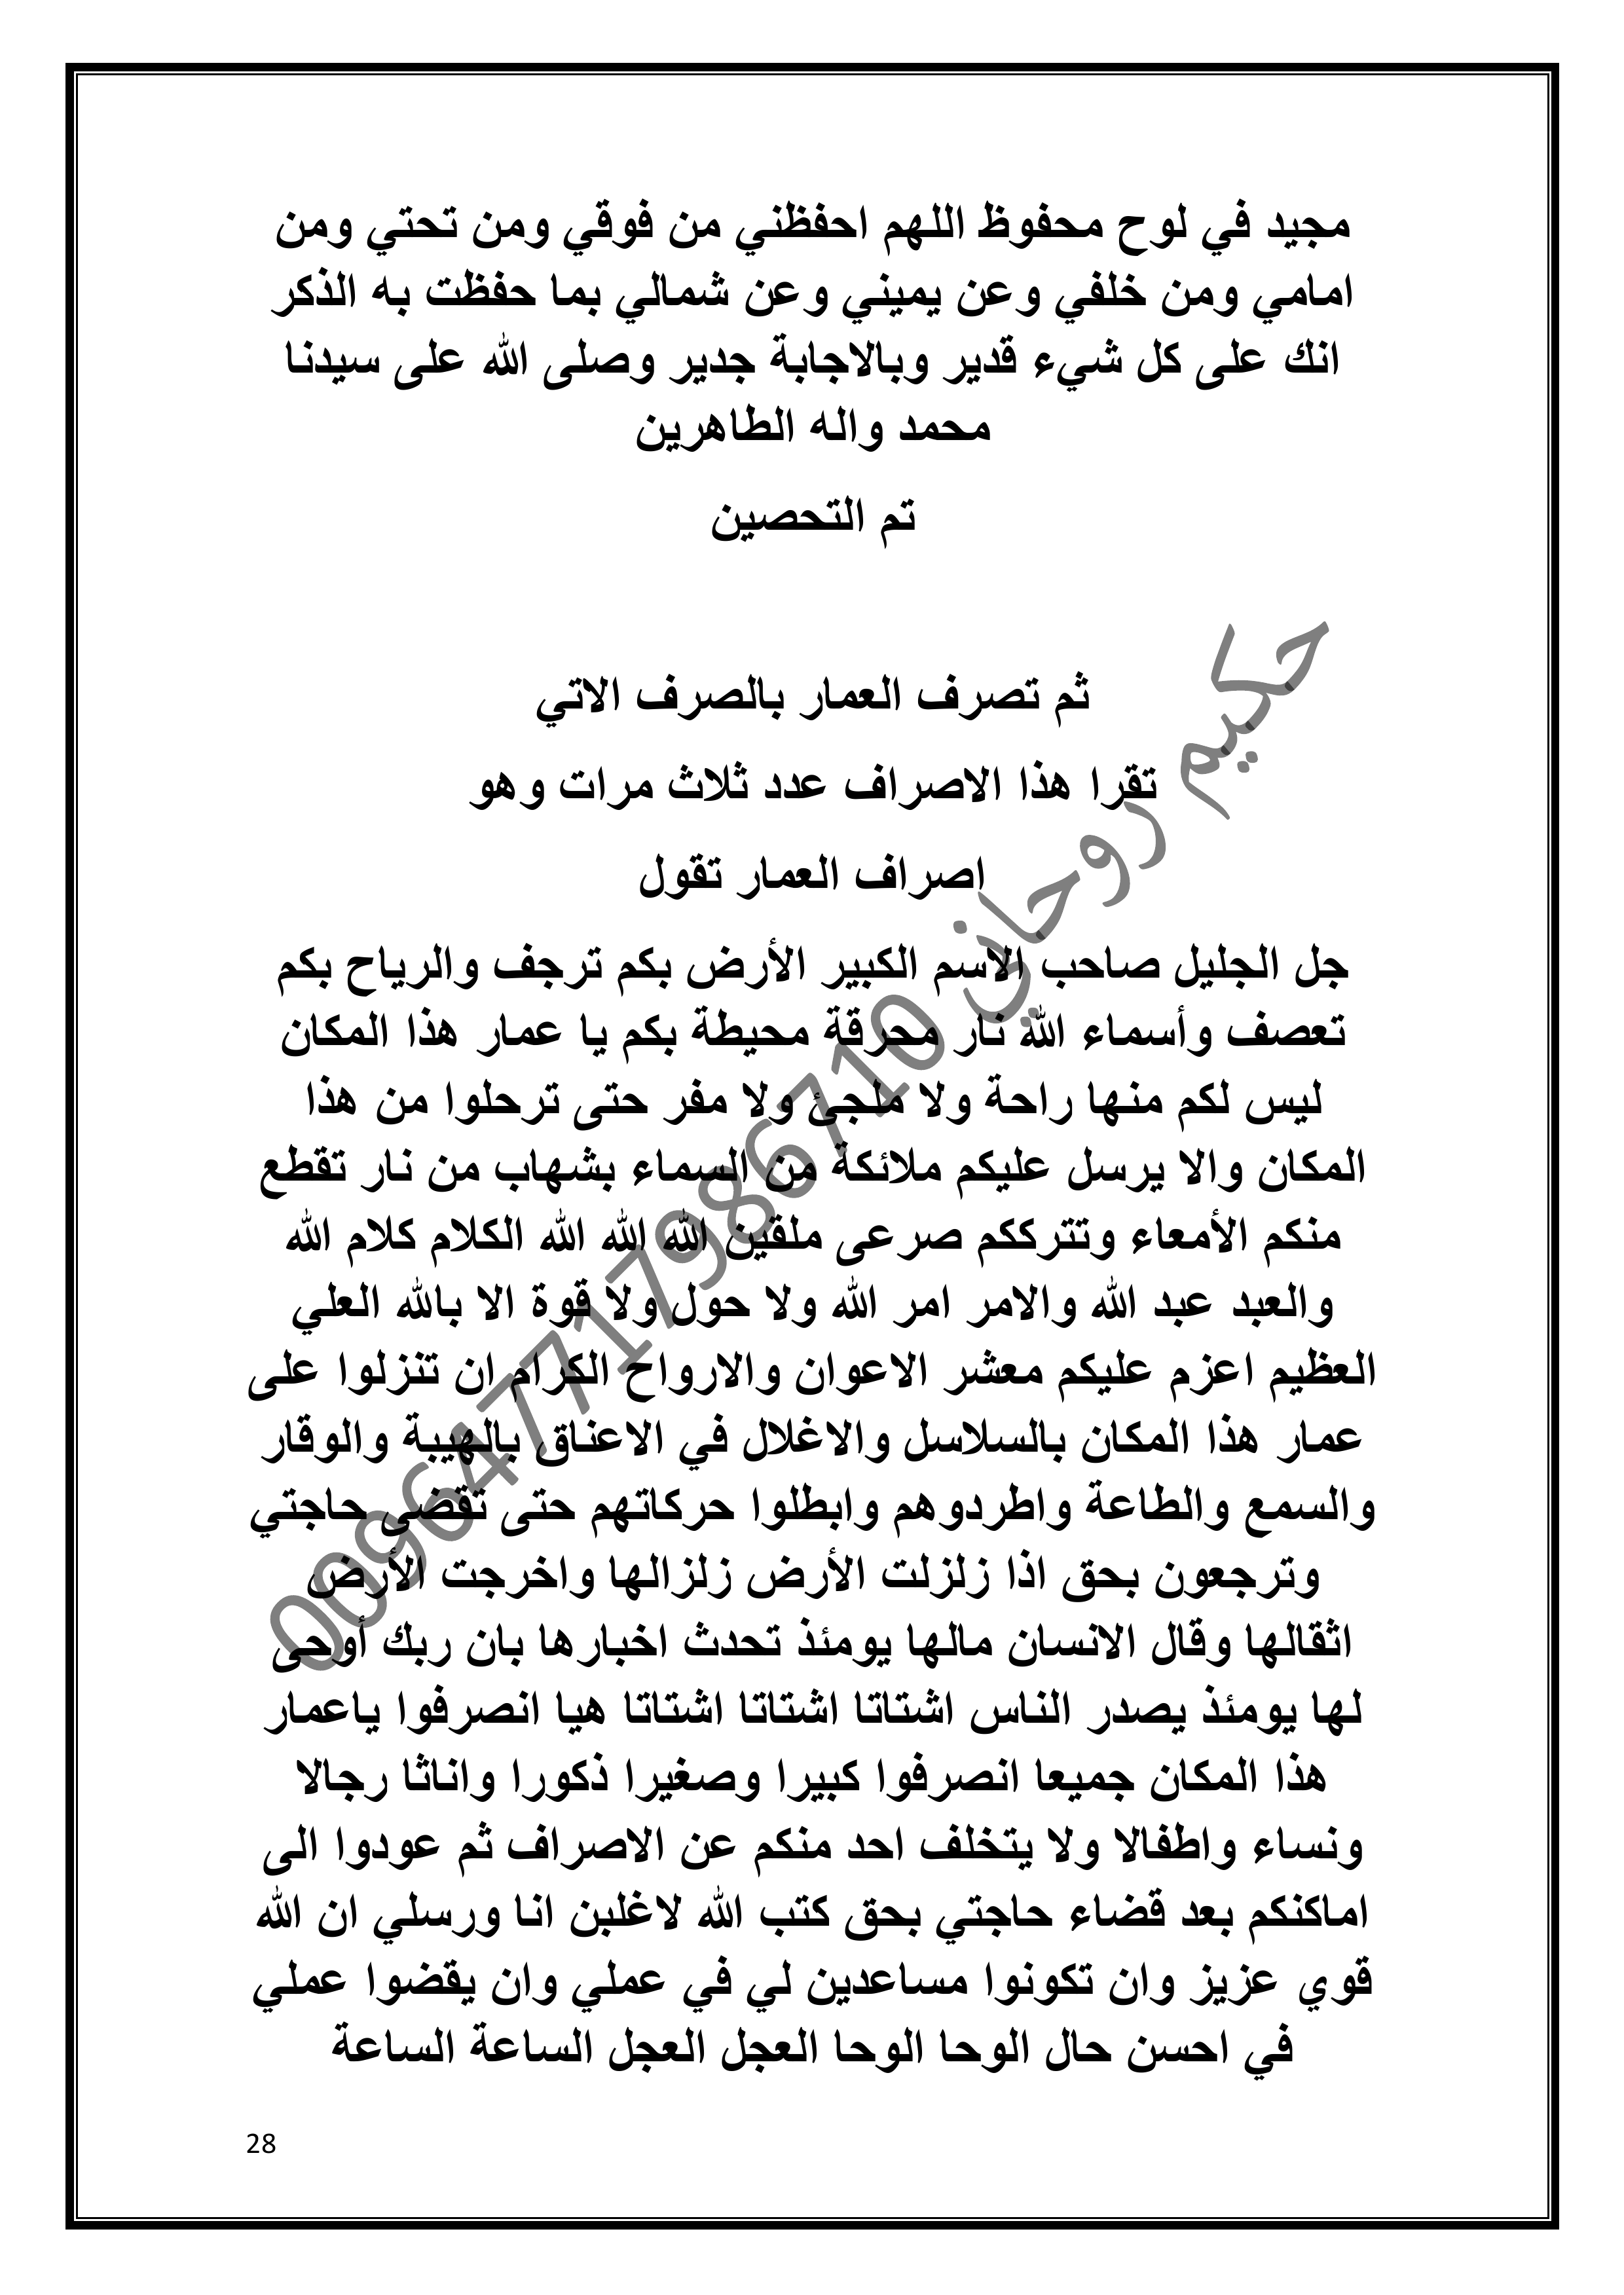 مجيد في لوح محفوظ اللهم احفظني من فوقي ومن تحتي ومن
امامي ومن خلفي وعن يميني وعن شمالي بما حفظت به الذكر
انك على كل شيء قدير وبالاجابة جدير وصلى الله على سيدنا
محمد واله الطاهرين
تم التحصين
ثم تصرف العمار بالصرف الاتي
تقرا هذا الاصراف عدد ثلاث مرات وهو
اصراف العمار تقول
جل الجليل صاحب الاسم الكبير الأرض بكم ترجف والرياح بكم
تعصف وأسماء الله نار محرقة محيطة بكم يا عمار هذا المكان
ليس لكم منها راحة ولا ملجئ ولا مفر حتى ترحلوا من هذا
المكان والا يرسل عليكم ملائكة من السماء بشهاب من نار تقطع
منكم الأمعاء وتترككم صرعى ملقين الله الله الله الكلام كلام الله
والعبد عبد الله والامر امر الله ولا حول ولا قوة الا بالله العلي
العظيم اعزم عليكم معشر الاعوان والارواح الكرام ان تنزلوا على
عمار هذا المكان بالسلاسل والاغلال في الاعناق بالهيبة والوقار
والسمع والطاعة واطردوهم وابطلوا حركاتهم حتى تقضى حاجتي
وترجعون بحق اذا زلزلت الأرض زلزالها واخرجت الأرض
اثقالها وقال الانسان مالها يومئذ تحدث اخبارها بان ربك أوحى
لها يومئذ يصدر الناس اشتاتا اشتاتا اشتاتا هيا انصرفوا ياعمار
هذا المكان جميعا انصرفوا كبيرا وصغيرا ذكورا واناثا رجالا
ونساء واطفالا ولا يتخلف احد منكم عن الاصراف ثم عودوا الى
اماكنكم بعد قضاء حاجتي بحق كتب الله لاغلبن انا ورسلي ان الله
قوي عزيز وان تكونوا مساعدين لي في عملي وان يقضوا عملي
في احسن حال الوحا الوحا العجل العجل الساعة الساعة
حكيم روحاني 009647717986710
28